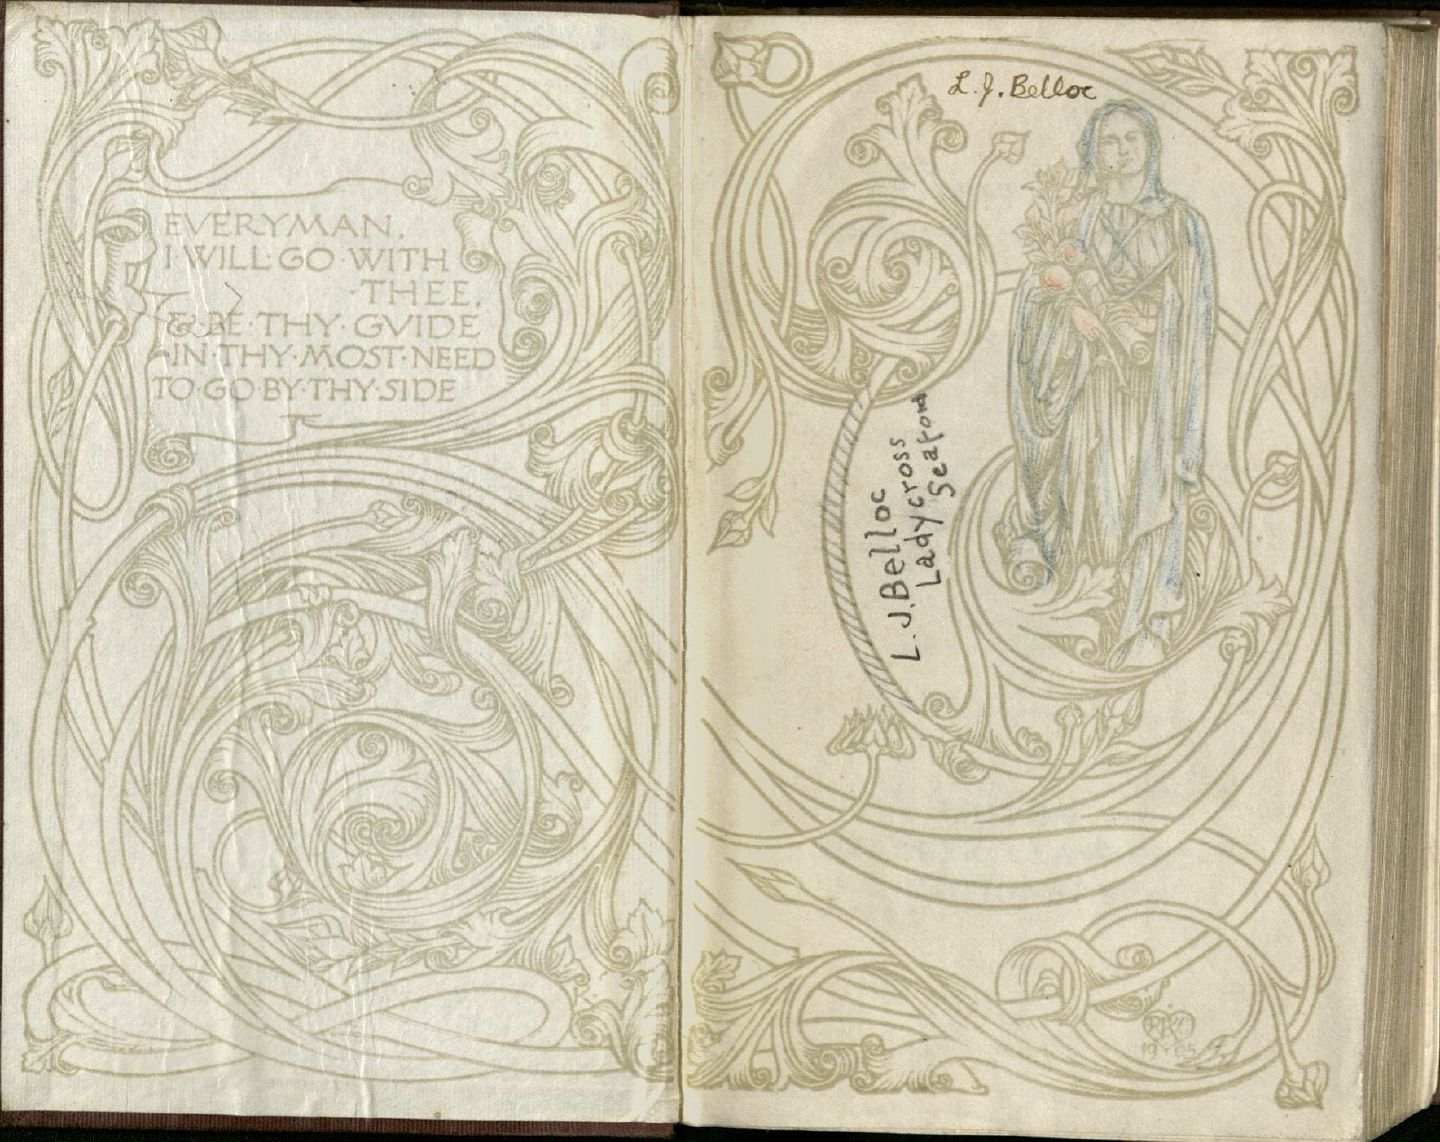 EVERYMAN,
I WILL·GO·WITH
·THEE,
&·BE·THY·GVIDE
·IN·THY·MOST·NEED
TO·GO·BY·THY·SIDE
L. J. Belloc
L. J. Belloc
Ladycross
Seaford
RLK
19 05